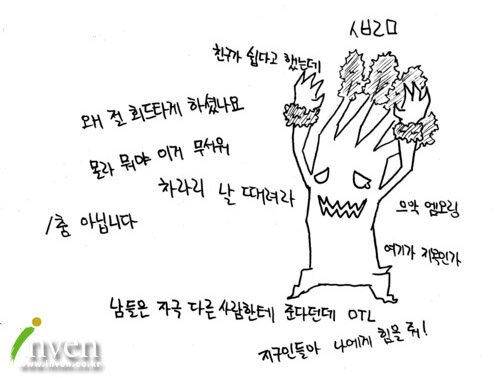 샏2ㅁ
친구가 쉽다고 했는데
왜 절 회드타게 하셨나요
몰라 뭐야 이거 무서워
차라리 날 때려라
/춤 아닙니다
으악 엠오링
여기가 지옥인가
남들은 자극 다른사람한테 준다던데 OTL
지구인들아 나에게 힘을 줘!
inven
www.inven.co.kr